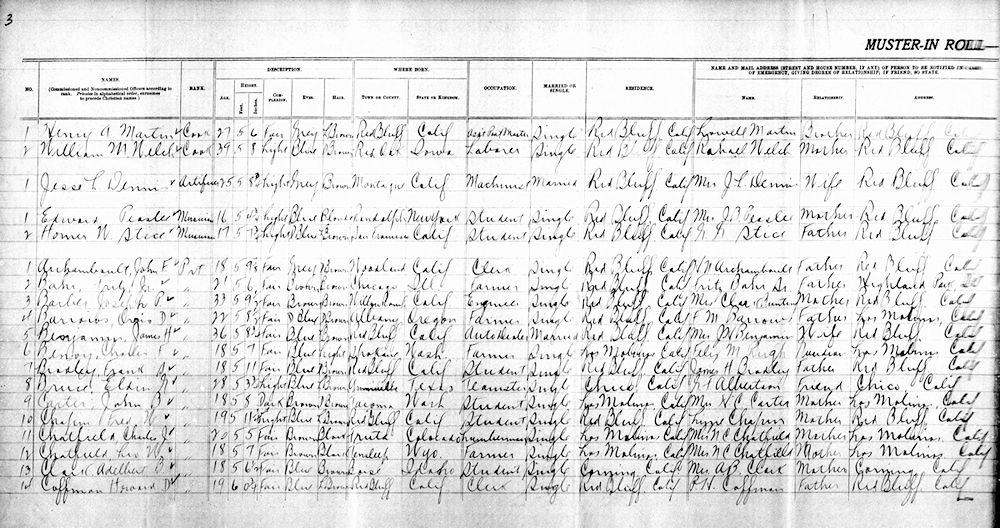 3
MUSTER-IN ROLL
NO. NAMES. (Commissioned and Noncommissioned Officers according to rank. Privates in alphabetical order, surnames to precede Christian names.) RANK. DESCRIPTION. AGE. HEIGHT. Feet. Inches. COMPLEXION. EYES. HAIR. WHERE BORN. TOWN OR COUNTY. STATE OR KINGDOM. OCCUPATION. MARRIED OR SINGLE. RESIDENCE. NAME AND MAIL ADDRESS (STREET AND HOUSE NUMBER, IF ANY) OF PERSON TO BE NOTIFIED IN CASE OF EMERGENCY, GIVING DEGREE OF RELATIONSHIP; IF FRIEND, SO STATE. NAME. RELATIONSHIP. ADDRESS.
1 Henry A Martin Cook 27 5 6 Fair Grey Brown Red Bluff Calif Single Red Bluff Calif Lowell Martin Brother Red Bluff Calif
2 William M Welch Cook 39 5 8 Light Blue Brown Red Oak Iowa Laborer Single Red Bluff Calif Welch Mother Red Bluff Calif
1 Jesse L Dennis Artificer 25 5 8 Light Grey Brown Montague Calif Machinist Married Red Bluff Calif Mrs J L Dennis Wife Red Bluff Calif
1 Edward Peaslee Musician 16 5 Light Blue Blonde Randolph New York Student Single Red Bluff Calif Mrs J F Peaslee Mother Red Bluff Calif
2 Homer W Stice Musician 17 5 Light Blue Brown San Francisco Calif Student Single Red Bluff Calif Stice Father Red Bluff Calif
1 Archambault, John F Pvt 18 5 9½ Fair Grey Brown Woodland Calif Clerk Single Red Bluff Calif Archambault Father Red Bluff Calif
2 Bahr, Fritz Jr 21 5 6 Fair Brown Brown Chicago Ill Farmer Single Red Bluff Calif Fritz Bahr Sr Father Highland Park Ill
3 Barber Joseph P 33 5 9 Fair Brown Brown Calif Engineer Single Red Bluff Calif Mrs Clara Mother Red Bluff Calif
4 Barrows, Orris D 22 5 8 Fair Blue Brown Albany Oregon Farmer Single Red Bluff Calif F M Barrows Father Los Molinos, Calif
5 Benjamin, James H 36 5 8 Fair Blue Brown Red Bluff Calif Auto Dealer Married Red Bluff Calif Mrs Benjamin Wife Red Bluff Calif
6 Benoy, Charles F 18 5 7 Fair Blue Light Spokane Wash Farmer Single Los Molinos Calif Guardian Los Molinos Calif
7 Bradley, Frank 18 5 11 Fair Blue Brown Red Bluff Calif Student Single Red Bluff Calif James H Bradley Father Red Bluff Calif
8 Bruce, Eldin 28 5 Light Blue Brown Texas Teamster Single Chico Calif Albertson Friend Chico, Calif
9 Carter, John B 18 5 8 Dark Brown Brown Tacoma Wash Student Single Los Molinos Calif Mrs Carter Mother Los Molinos, Calif
10 Chapin Fred W 19 5 11 Light Blue Brown Red Bluff Calif Student Single Red Bluff Calif Chapin Mother Red Bluff, Calif
11 Chatfield Charles J 20 5 5 Fair Brown Black Fruita Colorado Lumberman Single Los Molinos Calif Mrs N C Chatfield Mother Los Molinos, Calif
12 Chatfield Leo W 18 5 7 Fair Brown Black Wyo. Farmer Single Los Molinos, Calif Mrs N C Chatfield Mother Los Molinos Calif
13 Clark Adelbert B 18 5 6 Fair Blue Brown Boise Idaho Student Single Corning, Calif Mrs A B Clark Mother Corning, Calif
14 Coffman Howard D 19 6 0 Fair Blue Brown Red Bluff Calif Clerk Single Red Bluff Calif Coffman Father Red Bluff, Calif